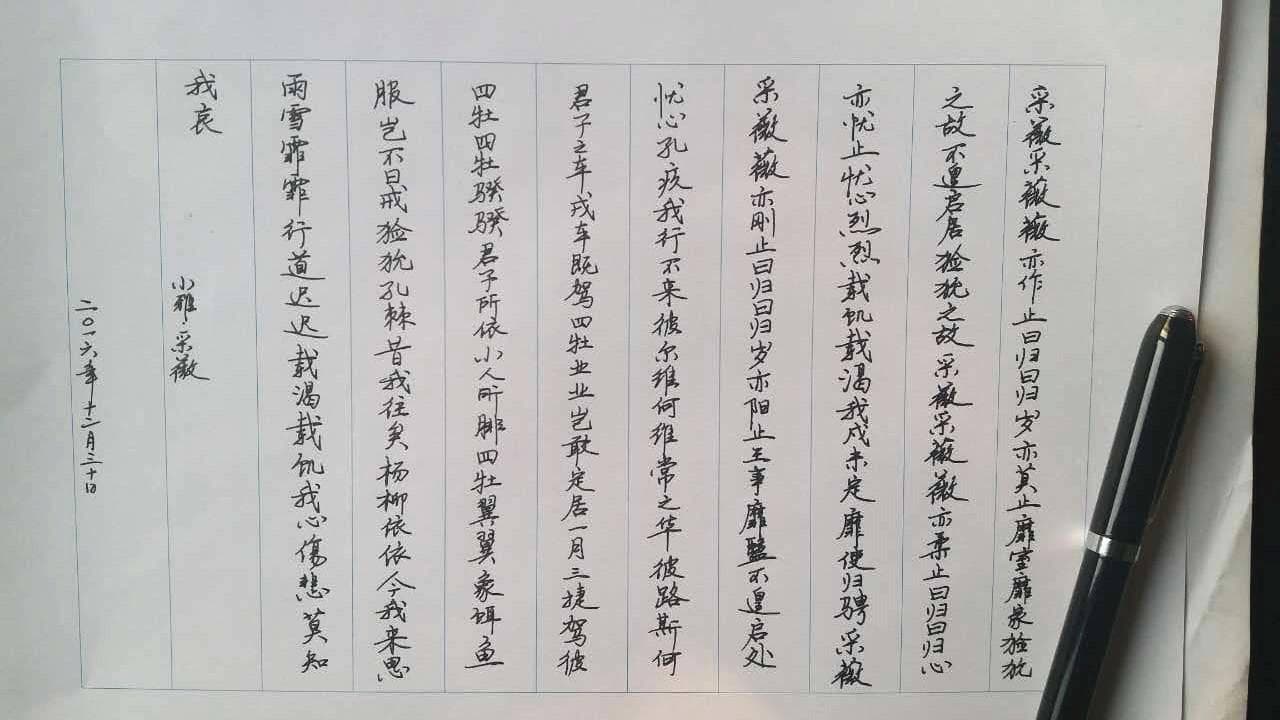 采薇采薇薇亦作止曰归曰归岁亦莫止靡室靡家猃狁
之故不遑启居猃狁之故采薇采薇薇亦柔止曰归曰归心
亦忧止忧心烈烈载饥载渴我戍未定靡使归骋采薇
采薇薇亦刚止曰归曰归岁亦阳止王事靡盬不遑启处
忧心孔疚我行不来彼尔维何维常之华彼路斯何
君子之车戎车既驾四牡业业岂敢定居一月三捷驾彼
四牡四牡骙骙君子所依小人所腓四牡翼翼象弭鱼
服岂不日戒猃狁孔棘昔我往矣杨柳依依今我来思
雨雪霏霏行道迟迟载渴载饥我心傷悲莫知
我哀
小雅·采薇
二〇一六年十二月三十日